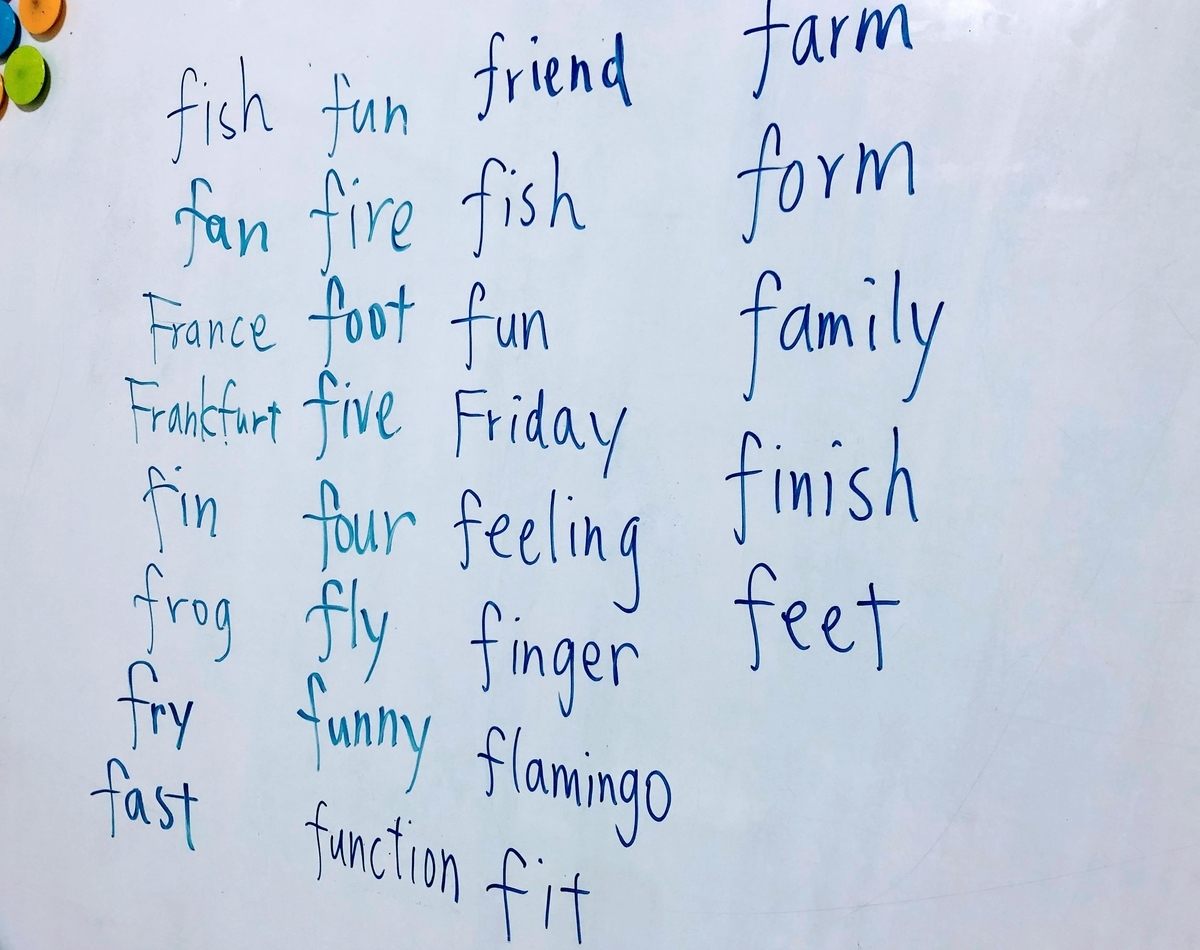 fish
fan
France
Frankfurt
fin
frog
fry
fast
fun
fire
foot
five
four
fly
funny
function
friend
fish
fun
Friday
feeling
finger
flamingo
fit
farm
form
family
finish
feet